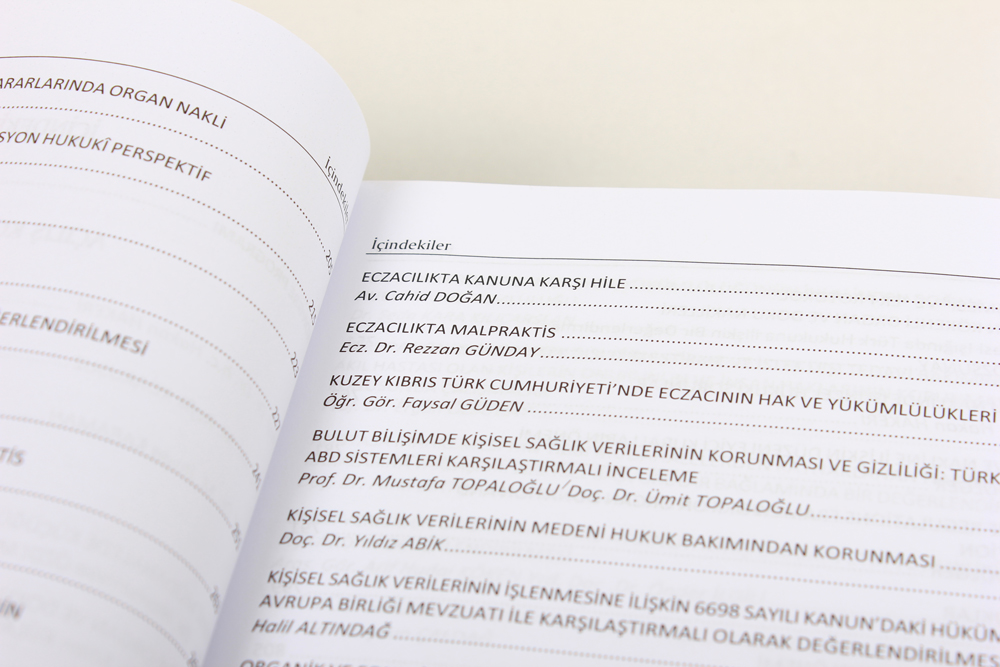 ARARLARINDA ORGAN NAKLİ
SYON HUKUKÎ PERSPEKTİF
ERLENDİRİLMESİ
223
TİS
İçindekiler
İçindekiler
ECZACILIKTA KANUNA KARŞI HİLE
Av. Cahid DOĞAN
ECZACILIKTA MALPRAKTİS
Ecz. Dr. Rezzan GÜNDAY
KUZEY KIBRIS TÜRK CUMHURİYETİ'NDE ECZACININ HAK VE YÜKÜMLÜLÜKLERİ
Öğr. Gör. Faysal GÜDEN
BULUT BİLİŞİMDE KİŞİSEL SAĞLIK VERİLERİNİN KORUNMASI VE GİZLİLİĞİ: TÜRK
ABD SİSTEMLERİ KARŞILAŞTIRMALI İNCELEME
Prof. Dr. Mustafa TOPALOĞLU/Doç. Dr. Ümit TOPALOĞLU
KİŞİSEL SAĞLIK VERİLERİNİN MEDENİ HUKUK BAKIMINDAN KORUNMASI
Doç. Dr. Yıldız ABİK
KİŞİSEL SAĞLIK VERİLERİNİN İŞLENMESİNE İLİŞKİN 6698 SAYILI KANUN'DAKİ HÜKÜM
AVRUPA BİRLİĞİ MEVZUATI İLE KARŞILAŞTIRMALI OLARAK DEĞERLENDİRİLMES
Halil ALTINDAĞ